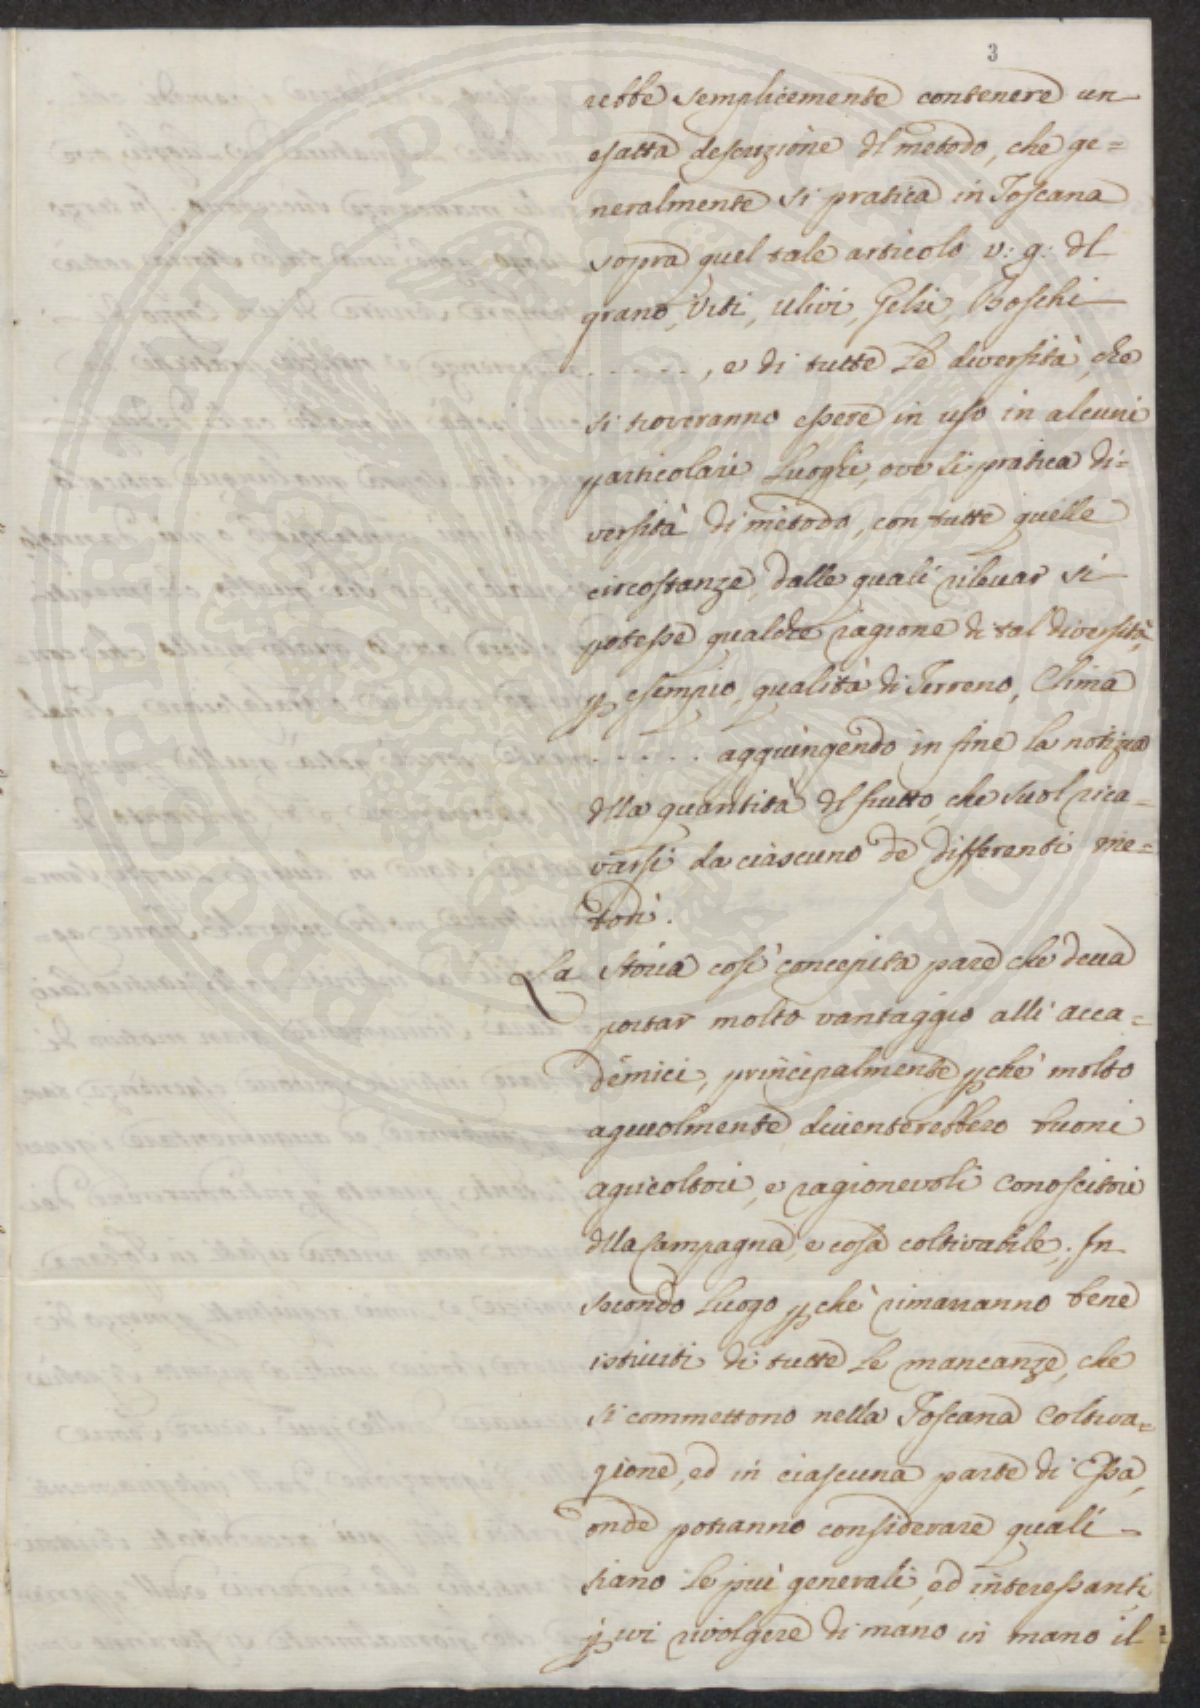 3
rebbe semplicemente contenere un
esatta descrizione dl metodo, che ge=
neralmente si pratica in Toscana
sopra quel tale articolo v: g: dl
grano, Viti, Ulivi, Gelsi, Boschi
. . . . . ., e di tutte le diversità, che
si troveranno essere in uso in alcuni
particolari Luoghi, ove si pratica di=
versità di metodo, con tutte quelle
circostanze, dalle quali rilevar si
potesse qualche ragione di tal diversità,
p esempio, qualità di Terreno, Clima
. . . . . . aggiungendo in fine la notizia
dlla quantità dl frutto, che suol rica=
varsi da ciascuno de differenti me=
todi.
La Storia così concepita pare che deva
portar molto vantaggio alli acca=
demici, principalmente pchè molto
agevolmente diventerebbero buoni
agricoltori, e ragionevoli conoscitori
dlla Campagna, e cosa coltivabile; In
secondo Luogo pchè rimarranno bene
istruiti di tutte le mancanze, che
si commettono nella Toscana Coltiva=
zione, ed in ciascuna parte di Essa,
onde potranno considerare quali
siano le più generali, ed interessanti,
p ivi rivolgere di mano in mano il
PUBLICAE
PROSPERITATI